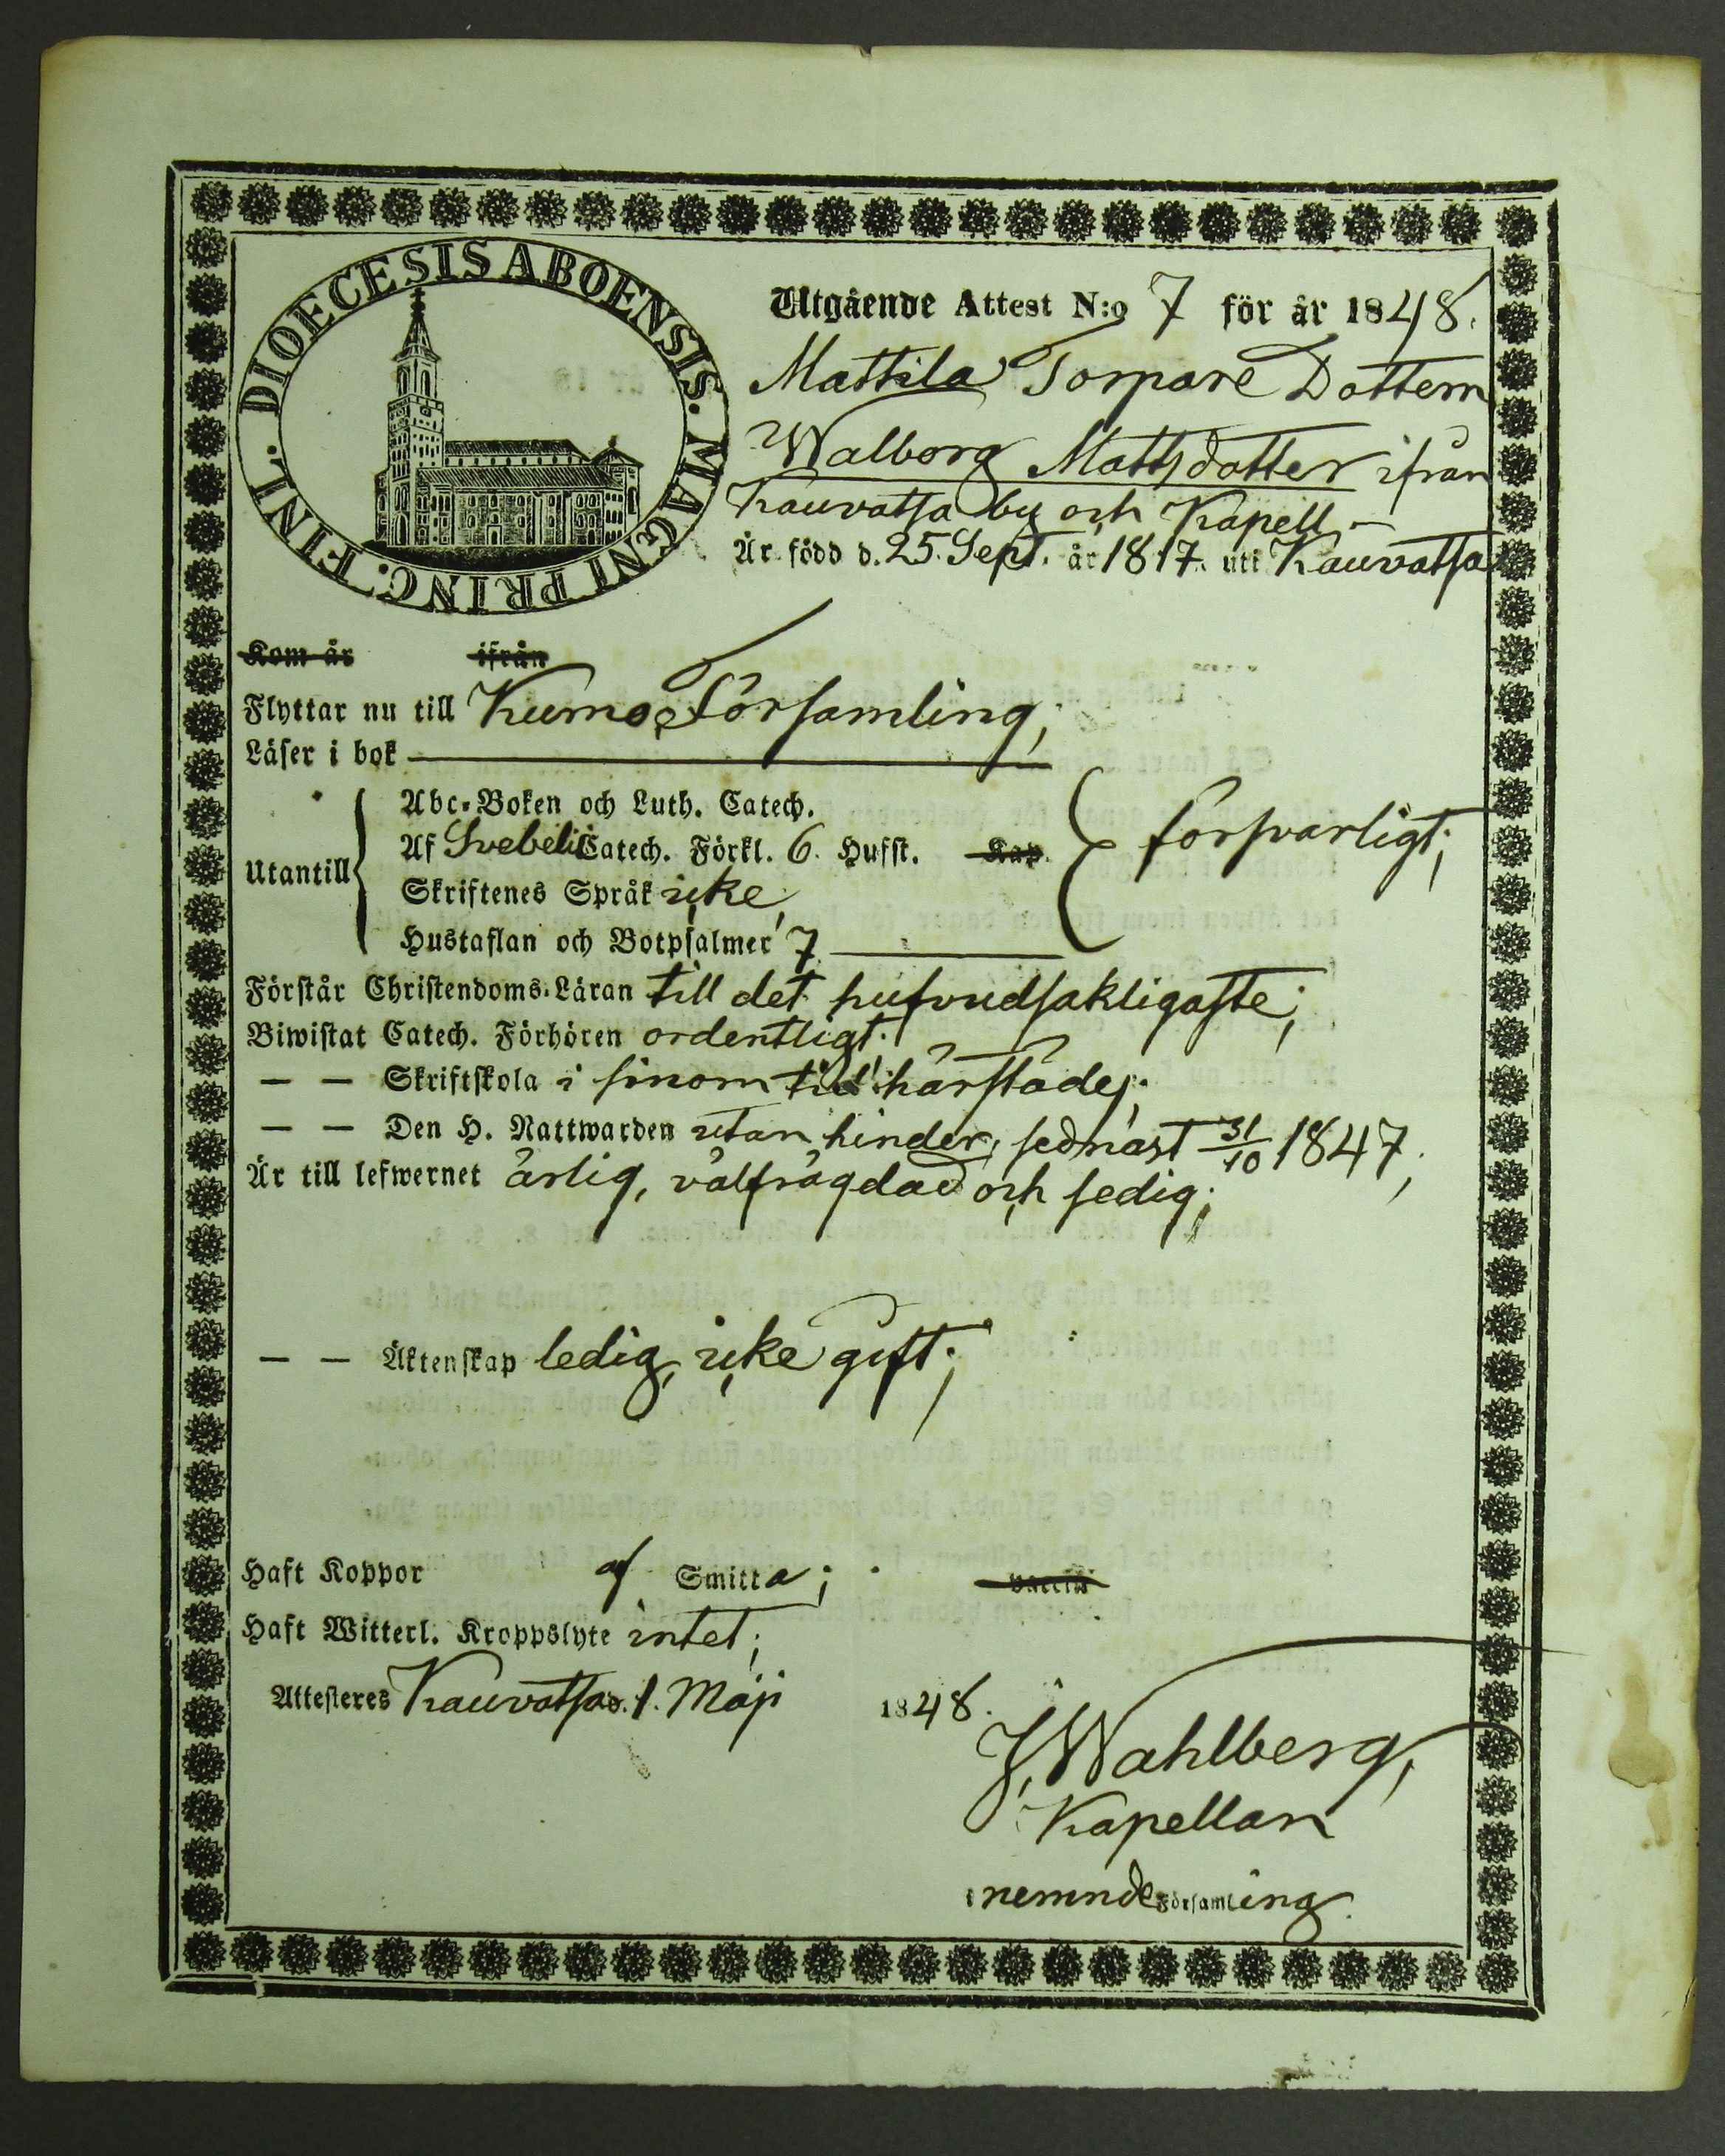 DIOECESIS ABOENSIS. MAGNI PRINC. FINL.
Utgående Attest N:o 7 för år 1848.
Mattila Torpare Dottern
Walborg Mattsdotter ifrån
Kauvatsa by och Kapell
Är född d. 25. Sept. år 1817 uti Kauvatsa
Kom år ifrån
Flyttar nu till Kumo Församling;
Läser i bok
Abc-Boken och Luth. Catech.
Af Svebelii Catech. Förkl. 6. Hufst. Kap. försvarligt;
Utantill
Skriftenes Språk icke,
Hustaflan och Botpsalmer 7
Förstår Christendoms-Läran till det hufvudsakligaste;
Biwistat Catech. Förhören ordentligt;
— — Skriftskola i sinom tid härstädes;
— — Den H. Nattwarden utan hinder, sednast 31/10 1847;
Är till lefwernet ärlig, välfrägdad och sedig;
— — Äktenskap ledig, icke gift;
Haft Koppor af Smitta; Vaccin
Haft Witterl. Kroppslyte intet;
Attesteres Kauvatsa d. 1. Maji 1848.
J. Wahlberg,
Kapellan
i nemnde Församling.